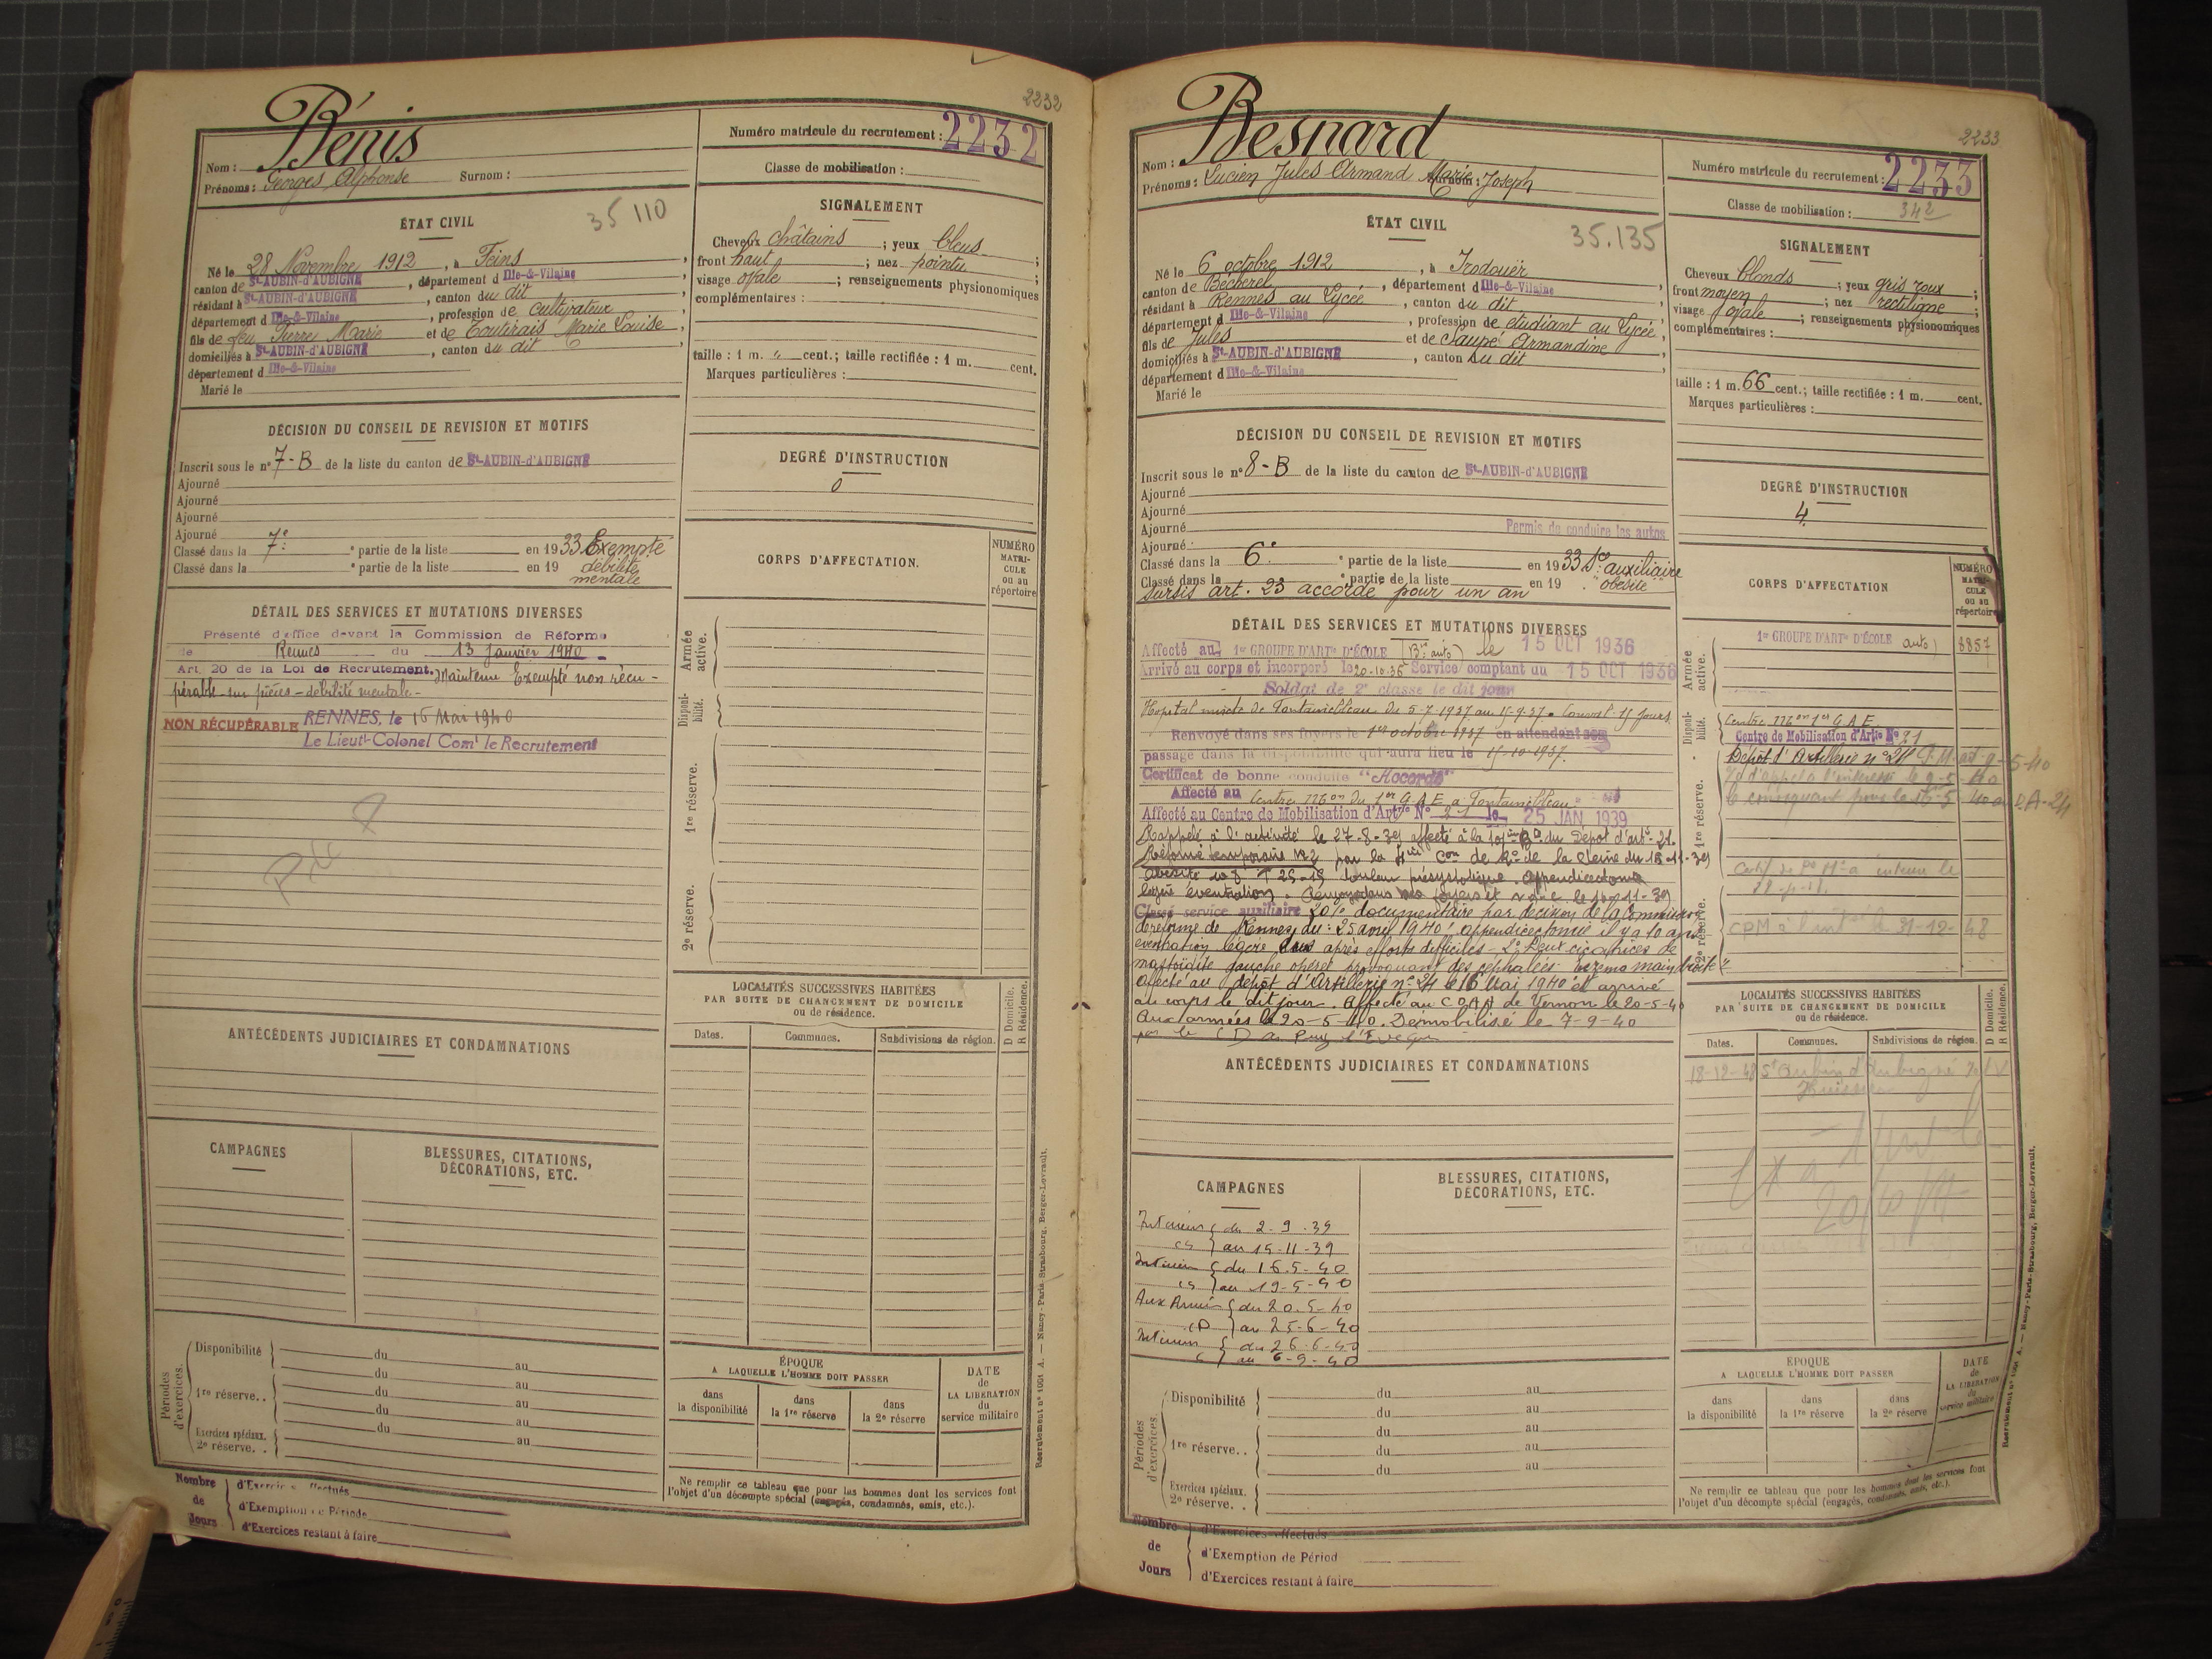 2232
Nom : Bénis
Prénoms : Georges Alphonse Surnom :
Numéro matricule du recrutement : 2232
Classe de mobilisation :
ÉTAT CIVIL
35 110
Né le 28 Novembre 1912, à Feins,
canton de St-AUBIN-d'AUBIGNÉ, département d Ille-&-Vilaine
résidant à St-AUBIN-d'AUBIGNÉ, canton du dit,
département d Ille-&-Vilaine, profession de cultivateur
fils de feu Pierre Marie et de Touterais Marie Louise,
domiciliés à St-AUBIN-d'AUBIGNÉ, canton du dit
département d Ille-&-Vilaine
Marié le
SIGNALEMENT
Cheveux châtains ; yeux bleus ;
front haut ; nez pointu ;
visage ovale ; renseignements physionomiques
complémentaires :
taille : 1 m. " cent.; taille rectifiée : 1 m. cent.
Marques particulières :
DÉCISION DU CONSEIL DE REVISION ET MOTIFS
Inscrit sous le n° 7-B de la liste du canton de St-AUBIN-d'AUBIGNÉ
Ajourné
Ajourné
Ajourné
Ajourné
Classé dans la 7e partie de la liste en 1933 Exempté
Classé dans la e partie de la liste en 19 débilité
mentale
DEGRÉ D'INSTRUCTION
0
CORPS D'AFFECTATION.
NUMÉRO
MATRI-
CULE
ou au
répertoire
Armée active.
Disponi-bilité.
1re réserve.
2e réserve.
DÉTAIL DES SERVICES ET MUTATIONS DIVERSES
Présenté d'office devant la Commission de Réforme
de Rennes du 13 Janvier 1940
Art. 20 de la Loi de Recrutement. Maintenu Exempté non récu-
pérable sur pièces - débilité mentale -
NON RÉCUPÉRABLE RENNES, le 16 Mai 1940
Le Lieut-Colonel Comt le Recrutement
ANTÉCÉDENTS JUDICIAIRES ET CONDAMNATIONS
LOCALITÉS SUCCESSIVES HABITÉES
PAR SUITE DE CHANGEMENT DE DOMICILE
ou de résidence.
Dates.
Communes.
Subdivisions de région.
D Domicile.
R Résidence.
CAMPAGNES
BLESSURES, CITATIONS,
DÉCORATIONS, ETC.
Périodes d'exercices.
Disponibilité du au
du au
1re réserve.. du au
du au
Exercices spéciaux. du au
2e réserve. .
ÉPOQUE
A LAQUELLE L'HOMME DOIT PASSER
dans
la disponibilité
dans
la 1re réserve
dans
la 2e réserve
DATE
de
LA LIBÉRATION
du
service militaire
Ne remplir ce tableau que pour les hommes dont les services font
l'objet d'un décompte spécial (engagés, condamnés, omis, etc.).
Nombre
de
Jours
d'Exercices effectués
d'Exemption de Période
d'Exercices restant à faire
Recrutement n° 1001 A. — Nancy-Paris-Strasbourg, Berger-Levrault.
2233
Nom : Besnard
Prénoms : Lucien Jules Armand Marie Joseph
Surnom :
Numéro matricule du recrutement : 2233
Classe de mobilisation : 342
ÉTAT CIVIL
35.135
Né le 6 octobre 1912, à Irodouër,
canton de Bécherel, département d Ille-&-Vilaine
résidant à Rennes au Lycée, canton du dit
département d Ille-&-Vilaine, profession de étudiant au Lycée,
fils de Jules et de Saupé Armandine,
domiciliés à St-AUBIN-d'AUBIGNÉ, canton du dit,
département d Ille-&-Vilaine
Marié le
SIGNALEMENT
Cheveux blonds ; yeux gris roux ;
front moyen ; nez rectiligne ;
visage ovale ; renseignements physionomiques
complémentaires :
taille : 1 m. 66 cent.; taille rectifiée : 1 m. cent.
Marques particulières :
DÉCISION DU CONSEIL DE REVISION ET MOTIFS
Inscrit sous le n° 8-B de la liste du canton de St-AUBIN-d'AUBIGNÉ
Ajourné
Ajourné
Ajourné
Permis de conduire les autos
Ajourné
Classé dans la 6e partie de la liste en 1933 Sce auxiliaire
Classé dans la e partie de la liste en 19 "obésité"
Sursis art. 23 accordé pour un an
DEGRÉ D'INSTRUCTION
4
CORPS D'AFFECTATION
NUMÉRO
MATRI-
CULE
ou au
répertoire
Armée active.
1er GROUPE D'ARTie D'ÉCOLE auto) 8857
Disponi-bilité.
Centre Mon 1er G A E
Centre de Mobilisation d'Artie N° 21
1re réserve.
Dépôt d'Artillerie n° 24
2e réserve.
CPM à l'int le 31-12-48
DÉTAIL DES SERVICES ET MUTATIONS DIVERSES
Affecté au 1er GROUPE D'ARTie D'ÉCOLE (Bie auto) le 15 OCT 1936
Arrivé au corps et incorporé le 20-10-36 Service comptant du 15 OCT 1936
Soldat de 2e classe le dit jour
Hopital mixte de Fontainebleau du 5-7-1937 au 15-9-37. Convost 15 jours
Renvoyé dans ses foyers le 1er octobre 1937 en attendant son
passage dans la disponibilité qui aura lieu le 15-10-1937.
Certificat de bonne conduite "Accordé"
Affecté au Centre Mon du 1er G A E a Fontainebleau
Affecté au Centre de Mobilisation d'Artie N° 21 le 25 JAN 1939
Rappelé à l'activité le 27-8-39 affecté à la Bie du Dépôt d'art. 21.
Réformé temporaire n°2 par la Con de Re de la Seine du 18-11-39
Classé service auxiliaire 20% documentaire par décision de la Commission
de réforme de Rennes du : 25 avril 1940 : appendicectomie il y a 10 ans
éventration légère après efforts difficiles - 2° Deux cicatrices de
mastoïdite gauche opérée provoquant des céphalées eczema main droite
Affecté au dépôt d'Artillerie n° 24 le 16 Mai 1940 et arrivé
au corps le dit jour. Affecté au C O A A de Vernon le 20-5-40
Aux armées le 20-5-40. Démobilisé le 7-9-40
par le C D à Puy l'Evêque
ANTÉCÉDENTS JUDICIAIRES ET CONDAMNATIONS
LOCALITÉS SUCCESSIVES HABITÉES
PAR SUITE DE CHANGEMENT DE DOMICILE
ou de résidence.
Dates.
Communes.
Subdivisions de région.
D Domicile.
R Résidence.
18-12-48 St Aubin d'Aubigné I/V
Huissier
CAMPAGNES
BLESSURES, CITATIONS,
DÉCORATIONS, ETC.
Intérieur { du 2-9-39
CS } au 15-11-39
Intérieur { du 16-5-40
CS } au 19-5-40
Aux Armées { du 20-5-40
CD } au 25-6-40
Intérieur { du 26-6-40
C } au 6-9-40
Périodes d'exercices.
Disponibilité du au
du au
1re réserve.. du au
du au
du au
Exercices spéciaux.
2e réserve. .
ÉPOQUE
A LAQUELLE L'HOMME DOIT PASSER
dans
la disponibilité
dans
la 1re réserve
dans
la 2e réserve
DATE
de
LA LIBÉRATION
du
service militaire
Ne remplir ce tableau que pour les hommes dont les services font
l'objet d'un décompte spécial (engagés, condamnés, omis, etc.).
Nombre
de
Jours
d'Exercices effectués
d'Exemption de Période
d'Exercices restant à faire
Recrutement n° 1001 A. — Nancy-Paris-Strasbourg, Berger-Levrault.